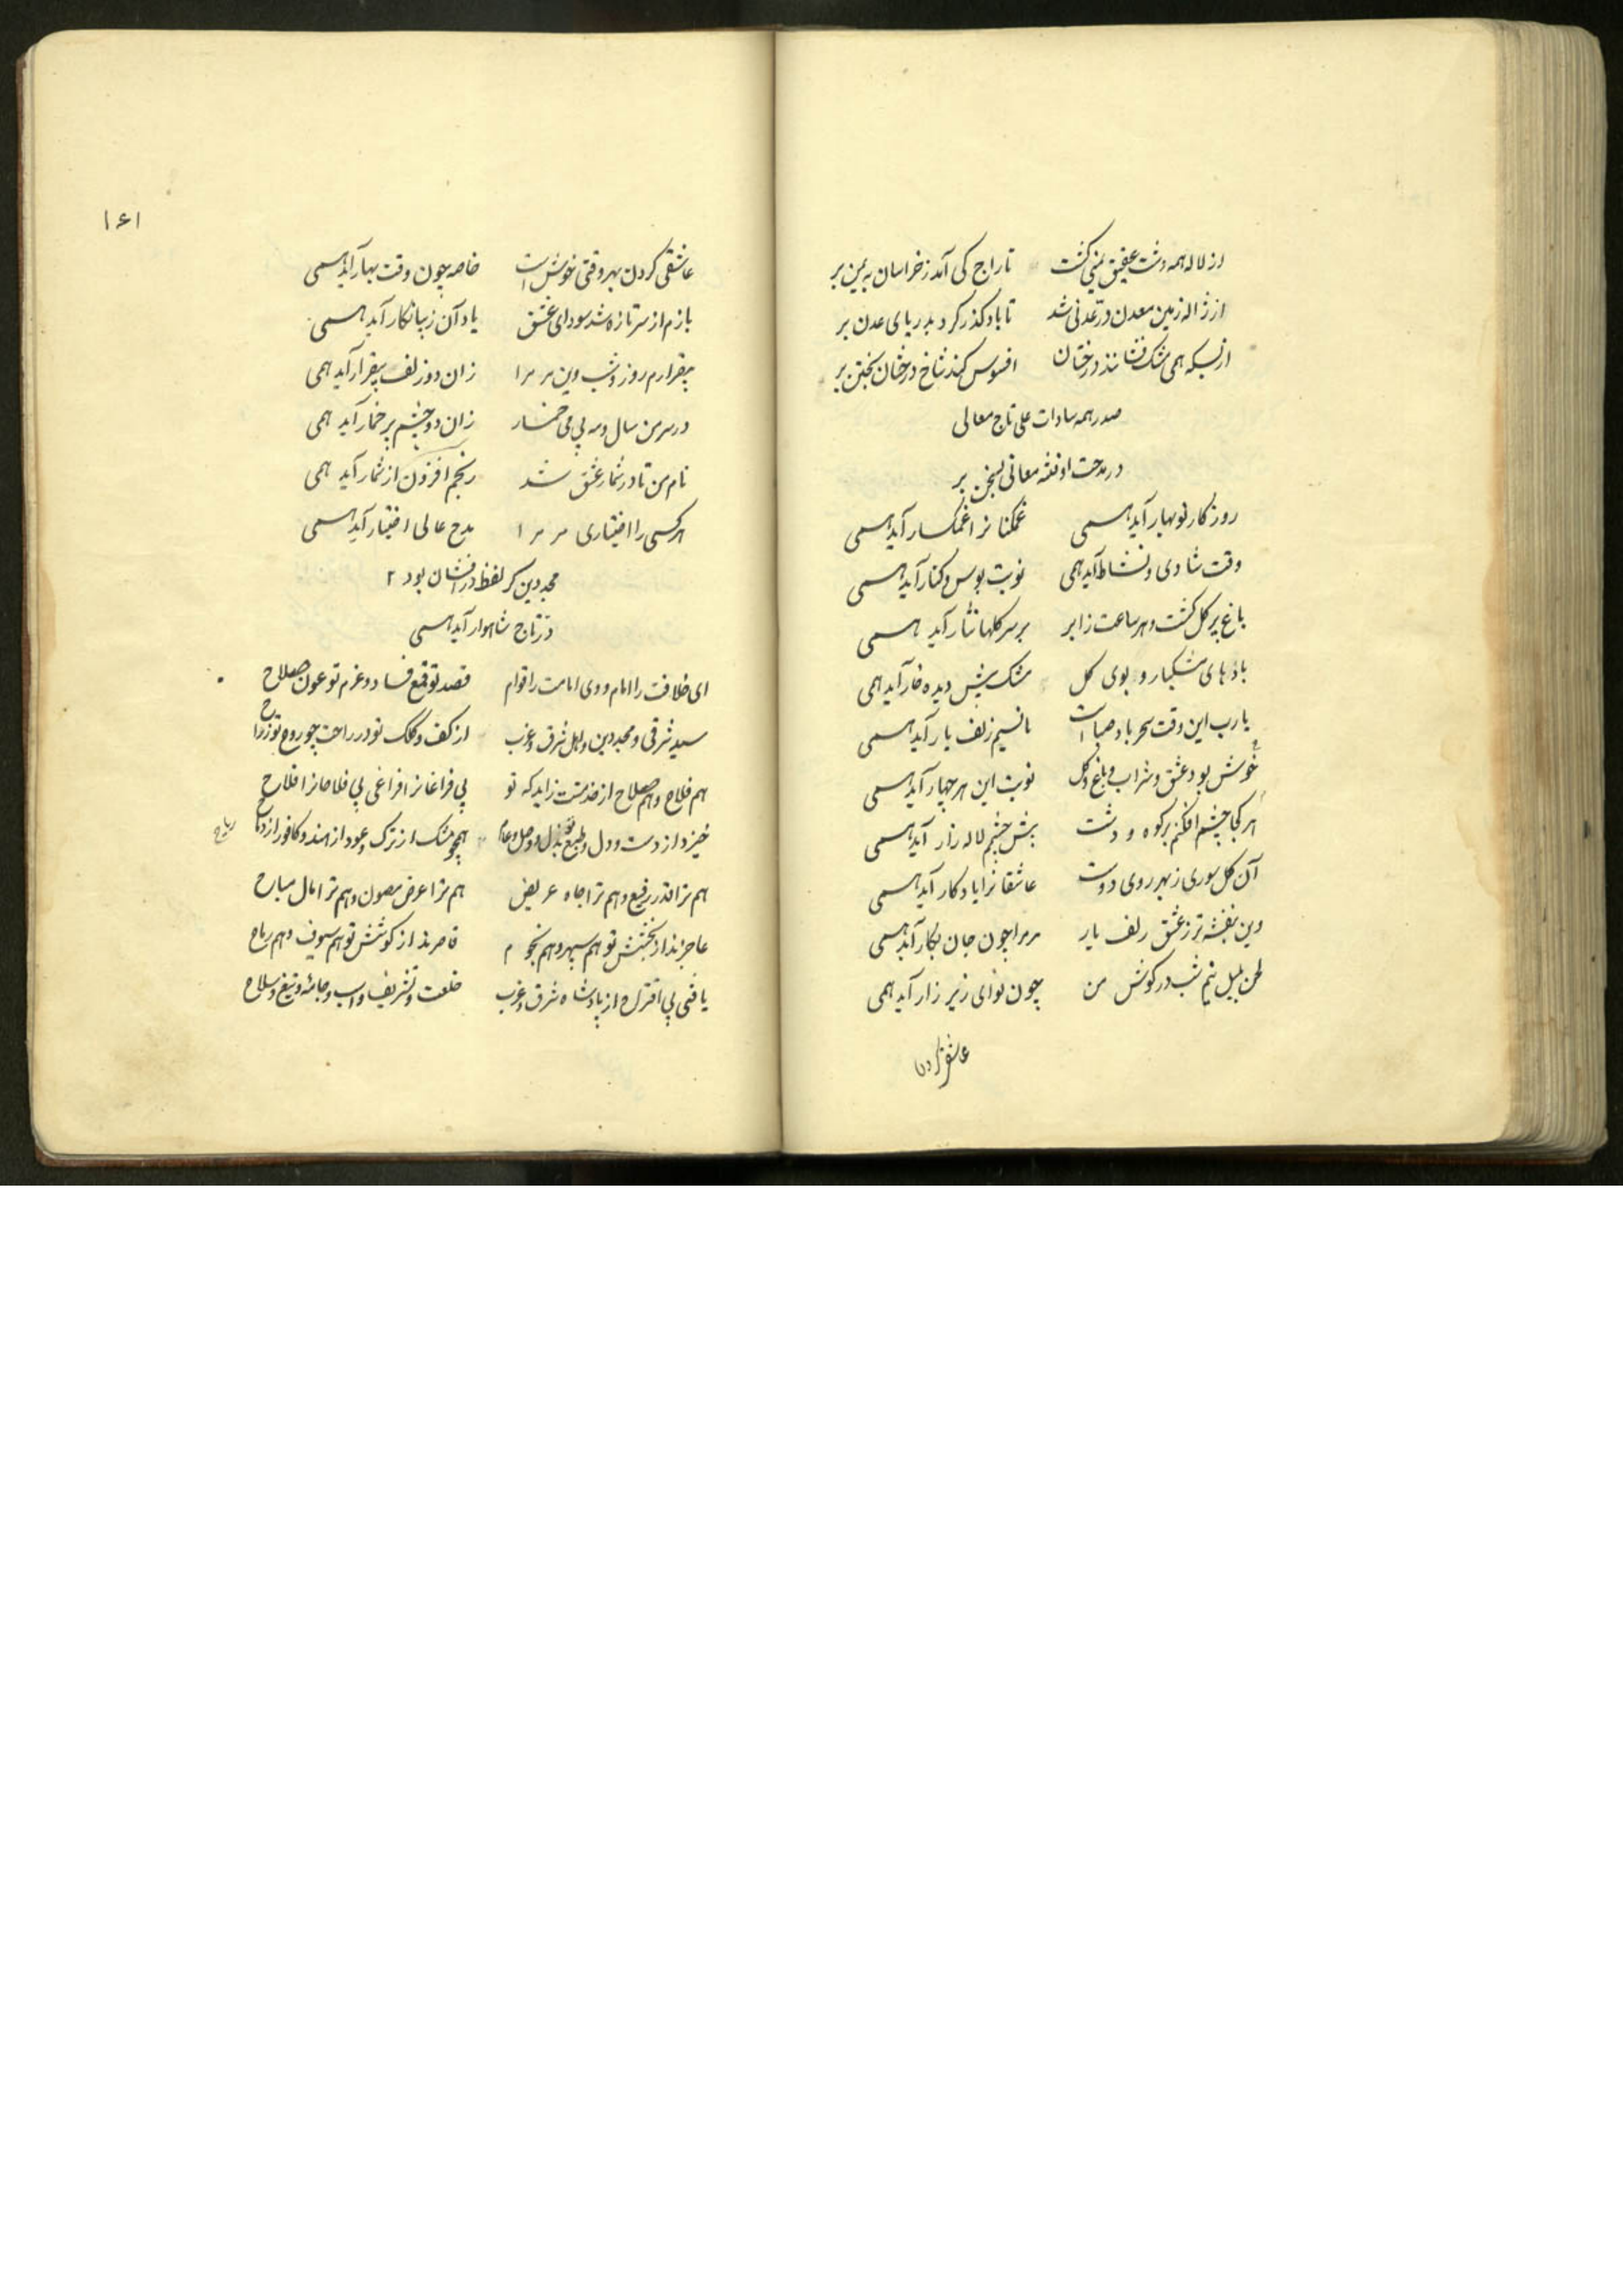 از لاله همه دشت عقیق یمنی کشت تاراج کی آمد ز خراسان به یمن بر
از ژاله زمین معدن در عدنی شد تا باد کذر کرد بدریای عدن بر
از بسکه همی مشک فشانند درختان افسوس کند شاخ درختان بختن بر
صدر همه سادات علی تاج معالی
در مدحت او نغمه معانی بسخن بر
روزکار نوبهار آید همی غمکنانرا غمکسار آید همی
وقت شادی و نشاط آید همی نوبت بوس و کنار آید همی
باغ پر کل کشت و هر ساعت ز ابر بر سر کلها نثار آید همی
بادهای مشکبار و بوی کل مشک پیش دیده خار آید همی
یارب این وقت سحر باد صباست یا نسیم زلف یار آید همی
خوش بود عشق و شراب و باغ و کل نوبت این هر چهار آید همی
هر کجا چشم افکنم بر کوه و دشت پیش چشمم لاله زار آید همی
آن کل سوری ز بهر روی دوست عاشقانرا یادکار آید همی
وین بنفشه تر ز عشق زلف یار مر مرا چون جان بکار آید همی
لحن بلبل نیم شب در کوش من چون نوای زیر زار آید همی
عاشقی کردن
۱۶۱
عاشقی کردن بهر وقتی خوش است خاصه چون وقت بهار آید همی
بازم از سر تازه شد سودای عشق یاد آن زیبا نکار آید همی
بیقرارم روز و شب وین مر مرا زان دو زلف بیقرار آید همی
در سر من سال و مه بی می خمار زان دو چشم پر خمار آید همی
نام من تا در شمار عشق شد رنجم افزون از شمار آید همی
هر کسی را اختیاری مر مرا مدح عالی اختیار آید همی
مجد دین کز لفظ درافشان بود
در تاج شاهوار آید همی
ای خلافت را امام و وی امامت را قوام قصد تو قمع فساد و عزم تو عون صلاح
سید شرقی و مجد دین و اهل شرق و غرب از کف و کلک تو در راحت چو روح
هم فلاح و هم صلاح از خدمتت زاید که تو بی فراغانرا فراغی بی فلاحانرا فلاح
خیزد از دست و دل و طبع تو بذل و همچو مشک از ترک و عود از هند و کافور از
رباح
هم ترا قدر رفیع و هم ترا جاه عریض هم ترا عرض مصون و هم ترا مال مباح
عاجزند از بخشش تو هم سپهر و هم نجوم قاصرند از کوشش تو هم سیوف و هم رماح
یافتی بی اقتراح از پادشاه شرق و غرب خلعت و تشریف و اسب و جامه و تیغ و سلاح